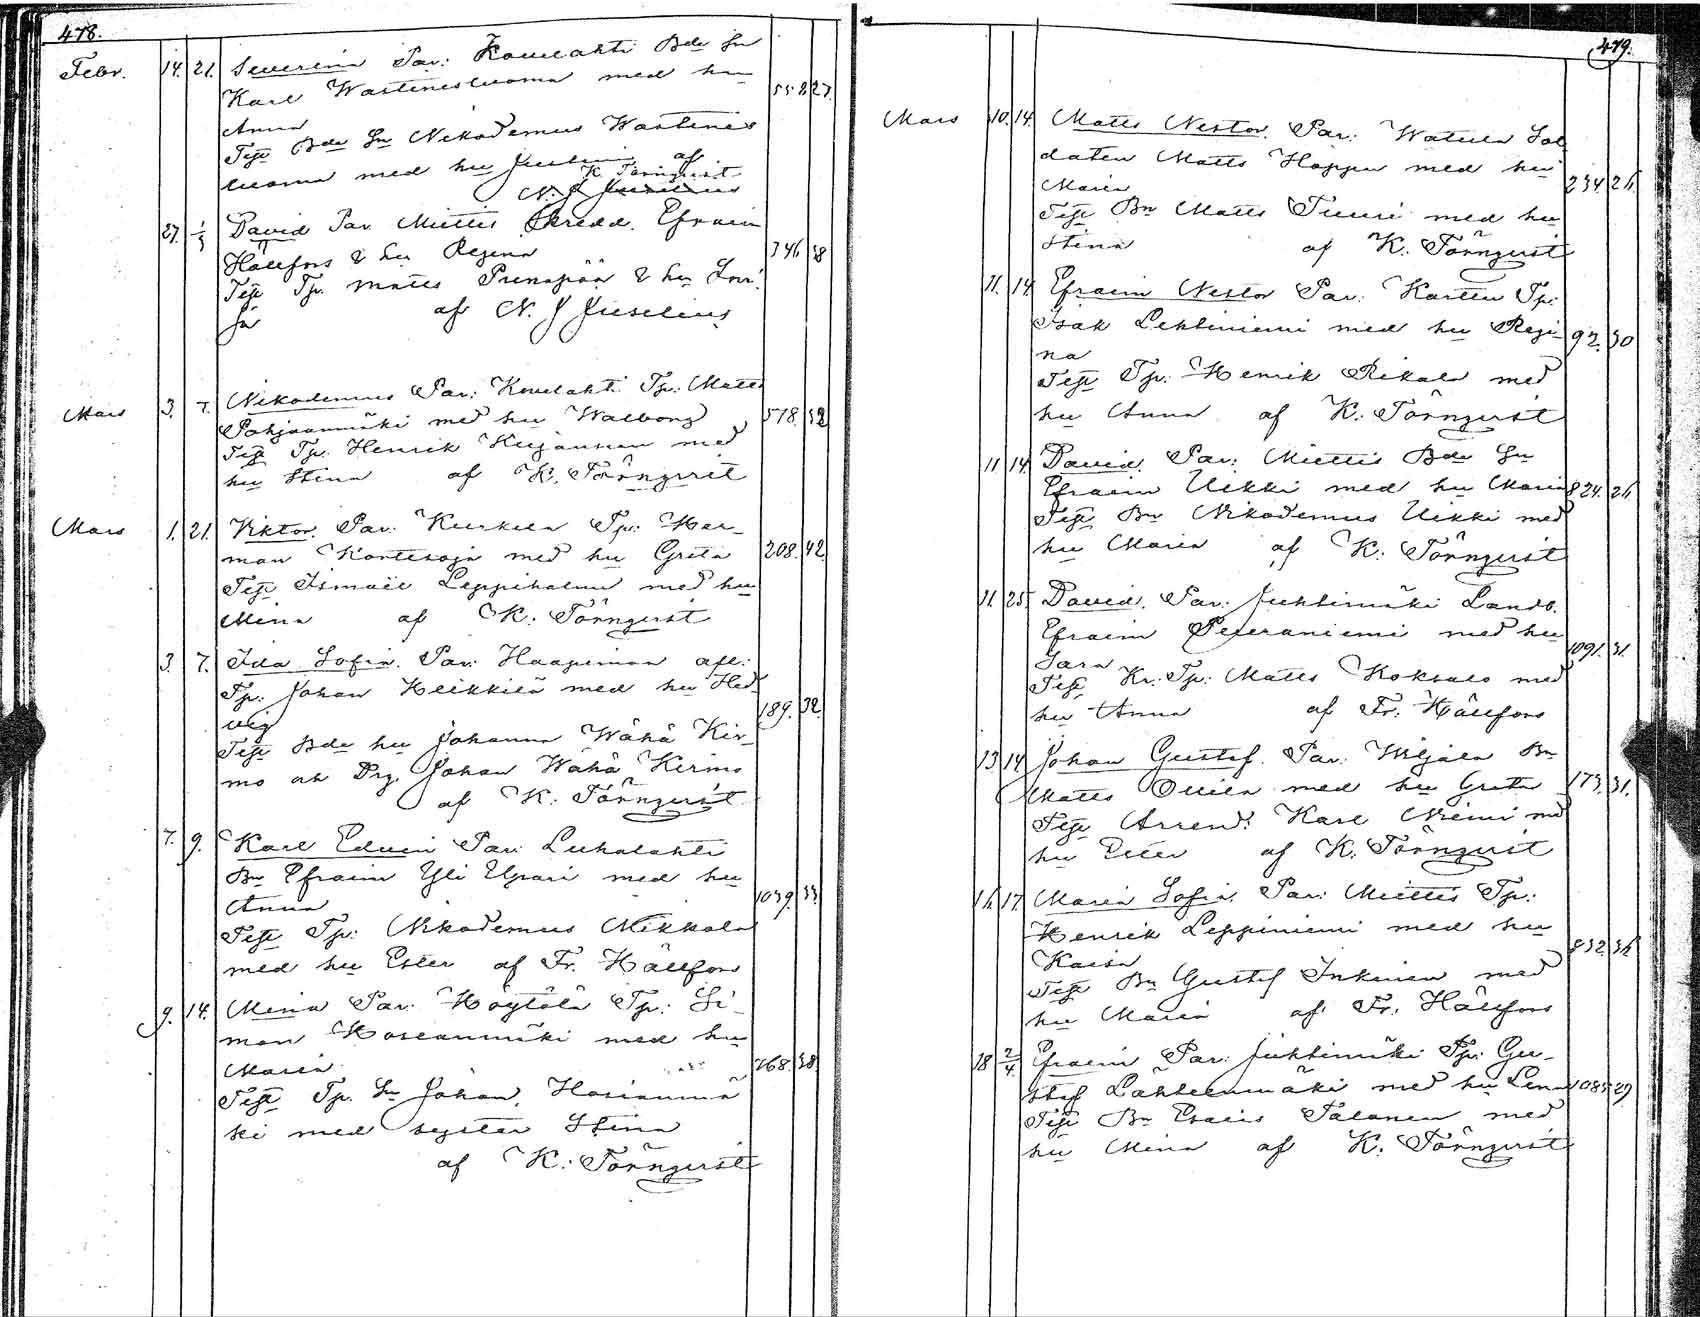 478.
Febr. 14. 21. Severina Par: Kouelahti Bde Sn
Karl Wästinesluoma med hu
Anna 558 27.
Test Bde Sn Nikodemus Wästines
luoma med hu Justina af
K. Törnqvist
N. J Juselius
27. 1/3 David Par. Miettis Skredd. Efraim
Hällfors & hu Regina 346 38
Test Tp. Matts & hu Lovi
sa af N. J Juselius
Mars 3. 7. Nikodemus Par: Kouelahti Tp: Matts
Pohjanmäki med hu Walborg 518. 32
Test Tp: Henrik med
hu Stina af K. Törnqvist
Mars 1. 21. Viktor. Par: Kuckila Tp: Her-
man Kontesoja med hu Greta 208. 42
Test Ismael Leppihalme med hu
Mina af K. Törnqvist
3. 7. Ida Sofia. Par: Haapiman afl:
Tp: Johan Heikkilä med hu Hed-
vig 189. 32.
Test Bde hu Johanna Wähä Kir-
mo och Drg. Johan Wähä Kirmo
af K. Törnqvist
7. 9. Karl Edvin Par: Luhalahti
Bn Efraim Yli Uppari med hu
Anna 1039. 33.
Test Tp: Nikodemus Mikkola
med hu Ester af Fr. Hällfors
9. 14. Mina Par: Höytölä Tp: Si-
mon Koscanmäki med hu
Maria 768. 38.
Test Tp. Sn Johan Hosianmä
ki med syster Stina
af K: Törnqvist
479.
Mars 10. 14. Matts Nestor. Par: Watula Sol
daten Matts Hoppu med hu
Maria 234 26
Test Bn Matts Tuuri med hu
Stina af K. Törnqvist
11. 14. Efraim Nestor Par: Karttu Tp:
Isak Lehtiniemi med hu Regi-
na 92. 30
Test Tp: Henrik Rikala med
hu Anna af K: Törnqvist
11 14. David. Par: Miettis Bde Sn
Efraim Uikki med hu Maria 824. 26
Test Bn Nikodemus Uikki med
hu Maria af K: Törnqvist
11. 25. David. Par: Juhtimäki Landb.
Efraim Peuraniemi med hu
Sara 1091. 31.
Test Kr: Tp: Matts Koksalo med
hu Anna af Fr. Hällfors
13 14. Johan Gustaf. Par: Wiljala Bn
Matts Ollila med hu Greta 173. 31.
Test Arrend: Karl Niemi med
hu Ester af K. Törnqvist
16 17. Maria Sofia. Par: Miettis Tp:
Henrik Leppiniemi med hu
Kaisa 832. 36
Test Bn Gustaf Inkinen med
hu Maria af Fr. Hällfors
18 2/4. Efraim Par: Juhtimäki Tp: Gu-
staf Lähteenmäki med hu Lena 1085 29
Test Bn Esaias Palonen med
hu Mina af K. Törnqvist